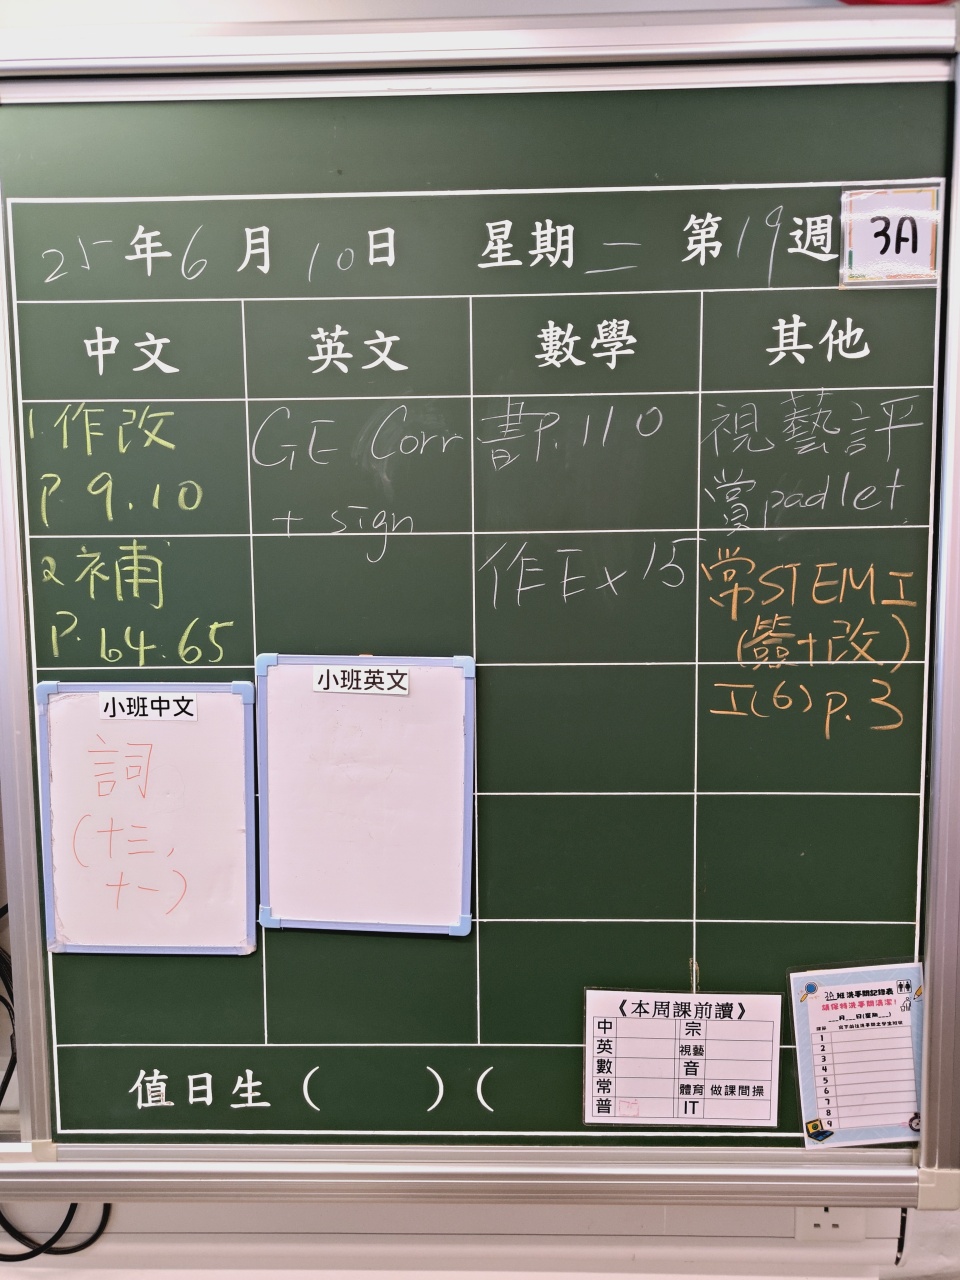 25年6月10日 星期二 第19週
3A
中文 英文 數學 其他
1.作改
P.9.10
2.補
P.64.65
GE Corr
+ sign
書P.110
作Ex 15
視藝評
賞padlet
常STEM工
(簽+改)
工(6)p.3
小班中文
詞
(十三,
十一)
小班英文
值日生( )(
《本周課前讀》
中 宗
英 視藝
數 音
常 體育 做課間操
普 IT
3A班洗手間記錄表
請保持洗手間清潔!
___月___日(星期___)
1
2
3
4
5
6
7
8
9